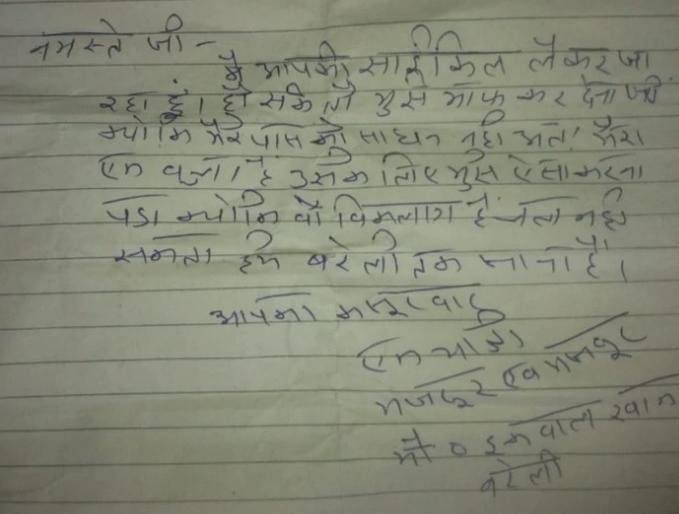 नमस्ते जी -
मै आपकी साईकिल लेकर जा
रहा हुं। हो सके तो मुझे माफ कर देना जी
क्योकि मेरे पास को साधन नही अतः मेरा
एक बच्चा है उसके लिए मुझे ऐसा करना
पडा क्योकि वो विकलांग है चल नही
सकता हमे बरेली तक जाना है।
आपका कसूरवार
एक यात्री
मजदूर एव मजबूर
मो० इकबाल खान
बरेली